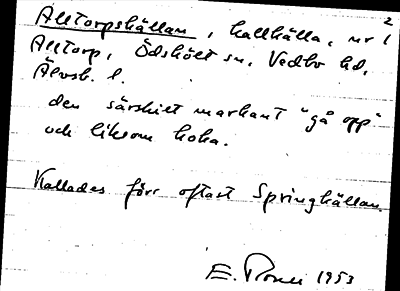 2
Älltorpskällan, kallkälla, nr 1
Alltorp, Ödskölt sn, Vedbo hd,
Älvsb. l.
den särskilt markant "gå opp"
och liksom koka.
Kallades förr oftast Springkällan.
E. 1953